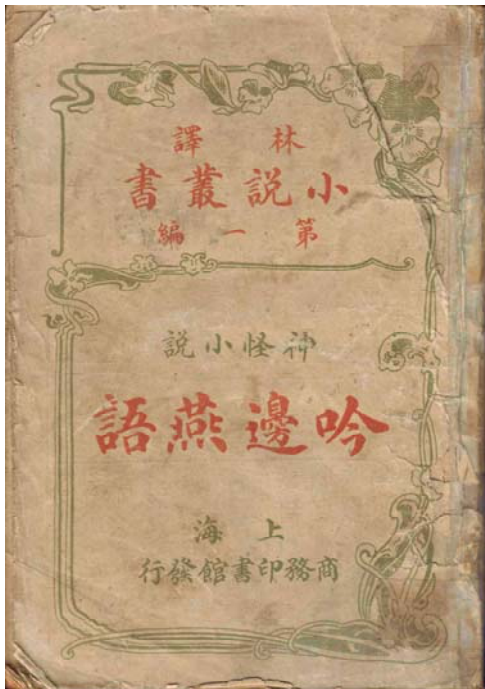 林譯
小説叢書
第一編
神怪小説
吟邊燕語
上海
商務印書館發行